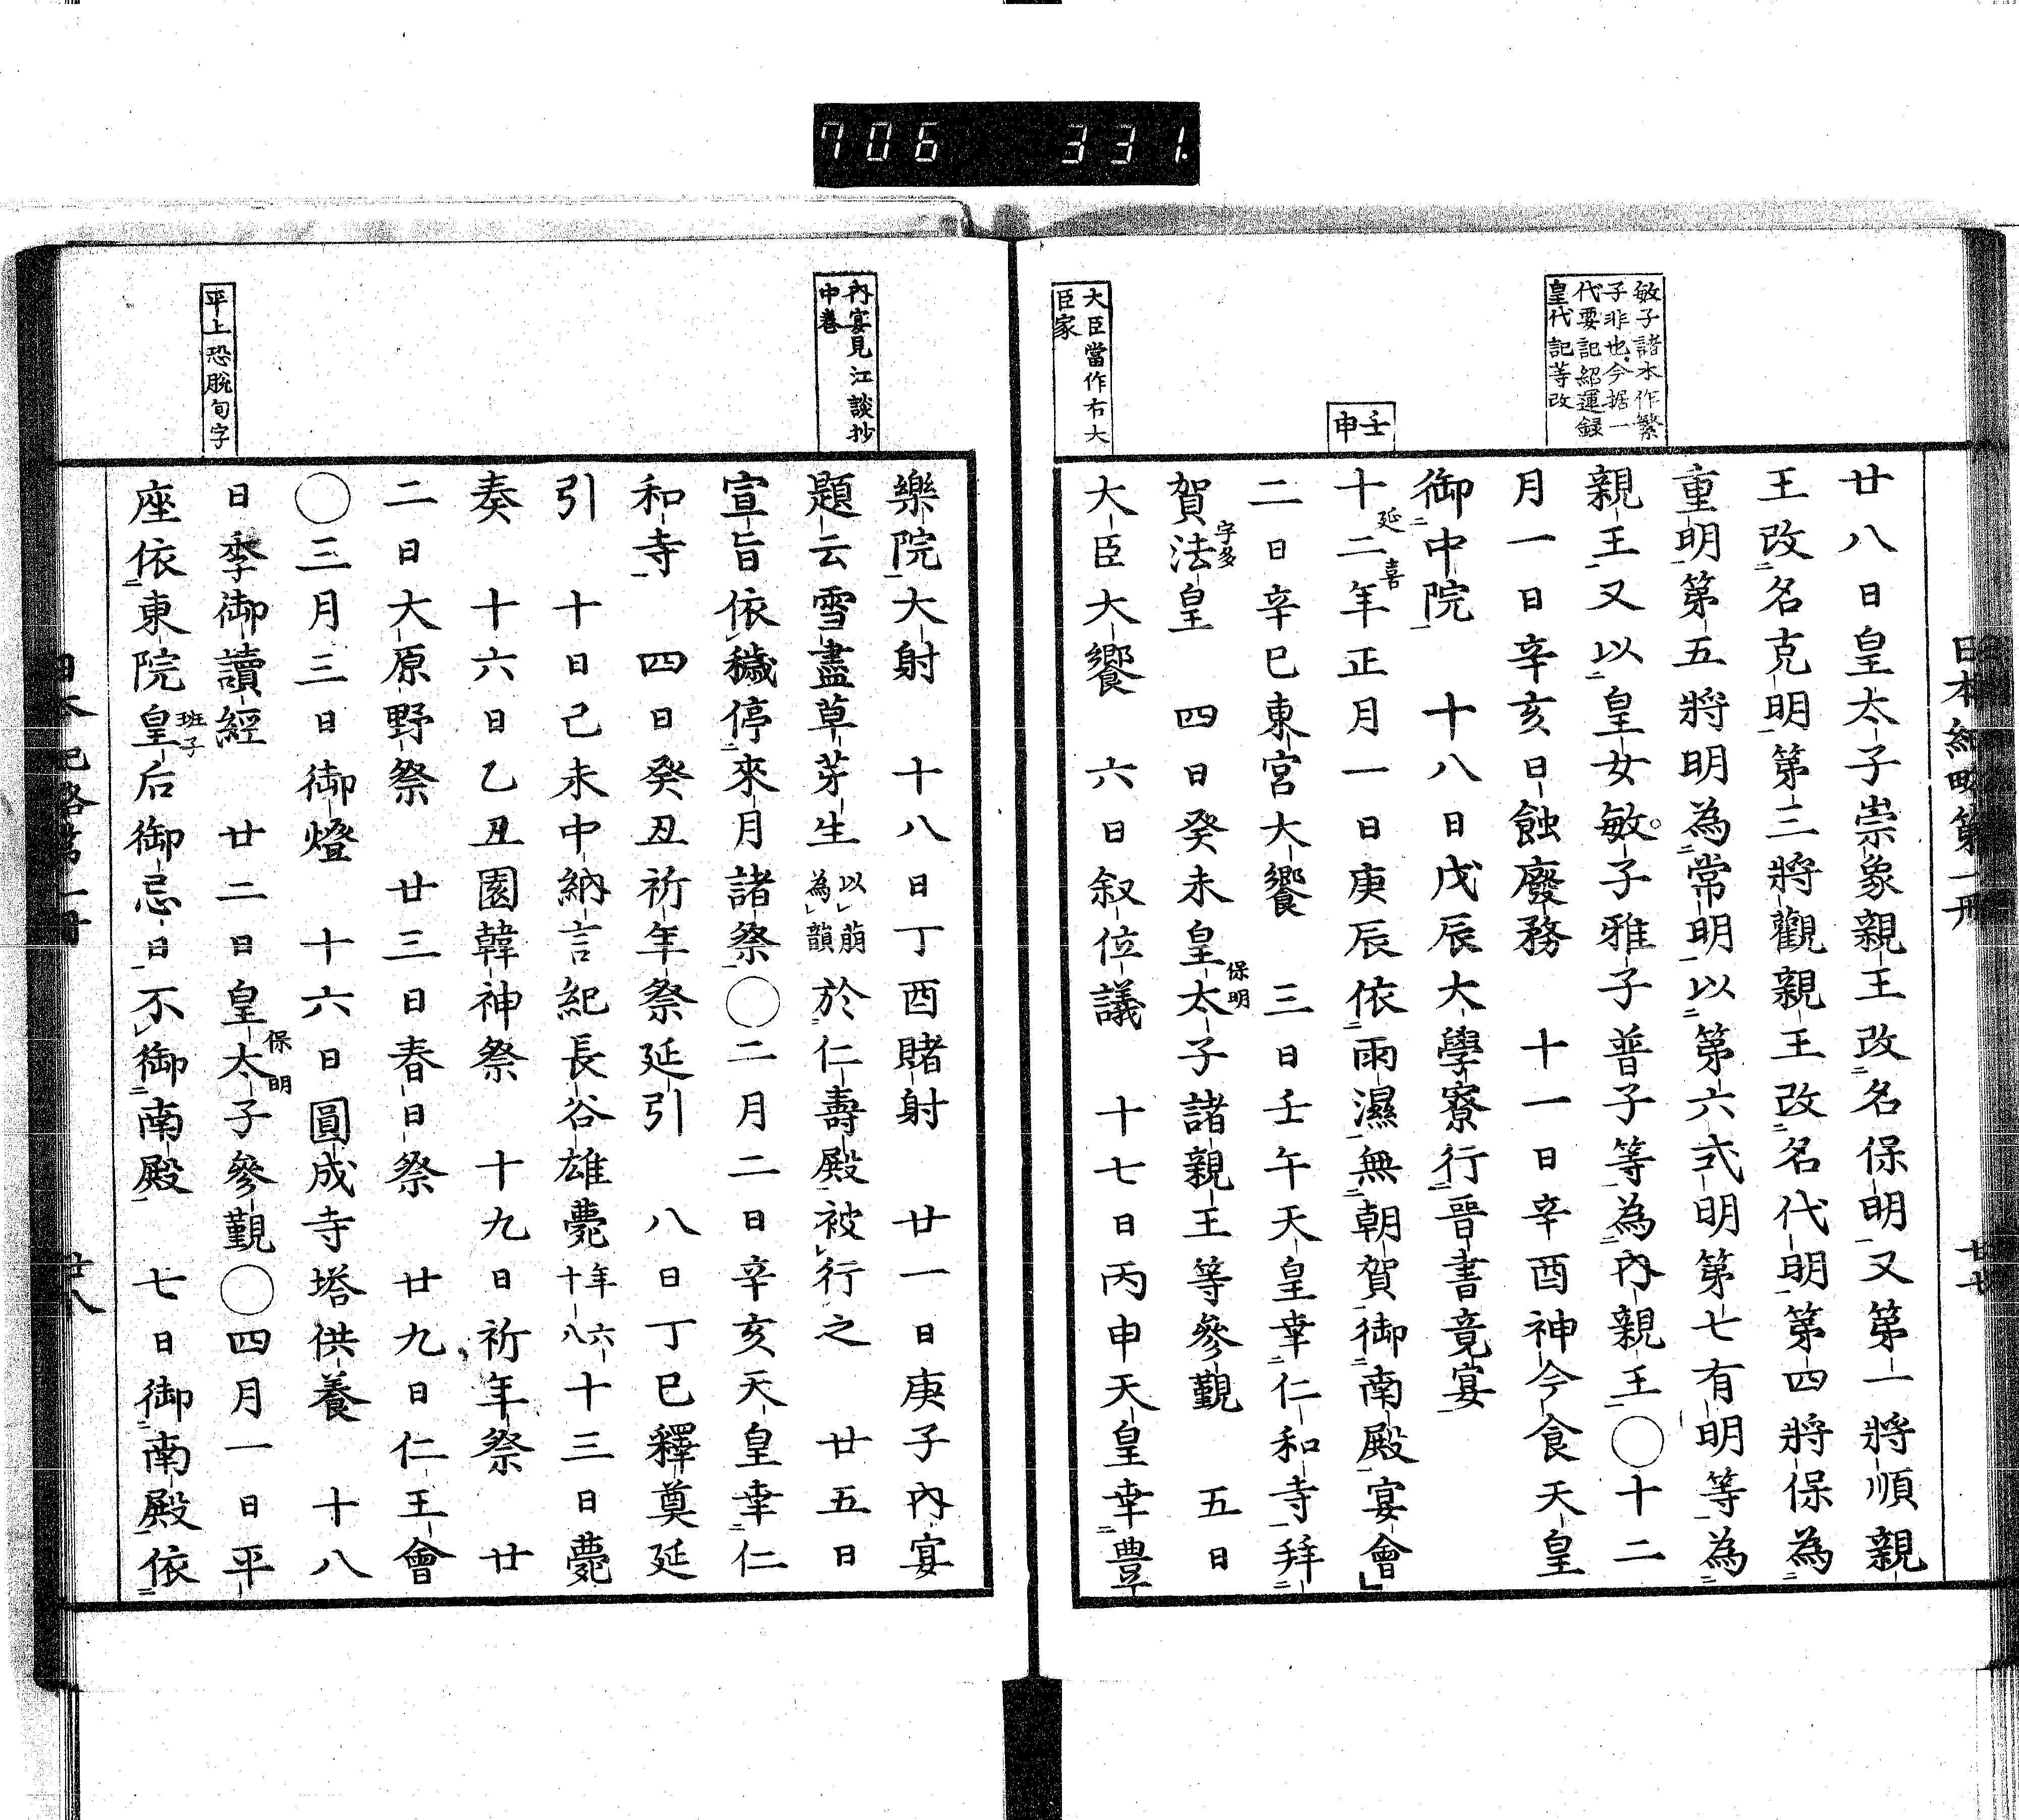 706 331.
敏子諸本作繁
子非也今据一
代要記紹運録
皇代記等改
壬申
大臣當作右大
臣家
廿八日皇太子崇象親王改名保明又第一將順親
王改名克明第三將觀親王改名代明第四將保為
重明第五將明為常明以第六式明第七有明等為
親王又以皇女敏子雅子普子等為內親王○十二
月一日辛亥日蝕廢務 十一日辛酉神今食天皇
御中院 十八日戊辰大學寮行晉書竟宴
延喜
十二年正月一日庚辰依雨濕無朝賀御南殿宴會
二日辛巳東宮大饗 三日壬午天皇幸仁和寺拜
宇多 保明
賀法皇 四日癸未皇太子諸親王等參覲 五日
大臣大饗 六日叙位議 十七日丙申天皇幸豊
日本紀畧第一冊 廿七
內宴見江談抄
中卷
平上恐脫旬字
樂院大射 十八日丁酉賭射 廿一日庚子內宴
題云雪盡草芽生以萠為韻於仁壽殿被行之 廿五日
宣旨依穢停來月諸祭○二月二日辛亥天皇幸仁
和寺 四日癸丑祈年祭延引 八日丁巳釋奠延
引 十日己未中納言紀長谷雄薨年六十八十三日薨
奏 十六日乙丑園韓神祭 十九日祈年祭 廿
二日大原野祭 廿三日春日祭 廿九日仁王會
○三月三日御燈 十六日圓成寺塔供養 十八
保明
日季御讀經 廿二日皇太子參覲○四月一日平
班子
座依東院皇后御忌日不御南殿 七日御南殿依
日本紀略第一冊 廿八